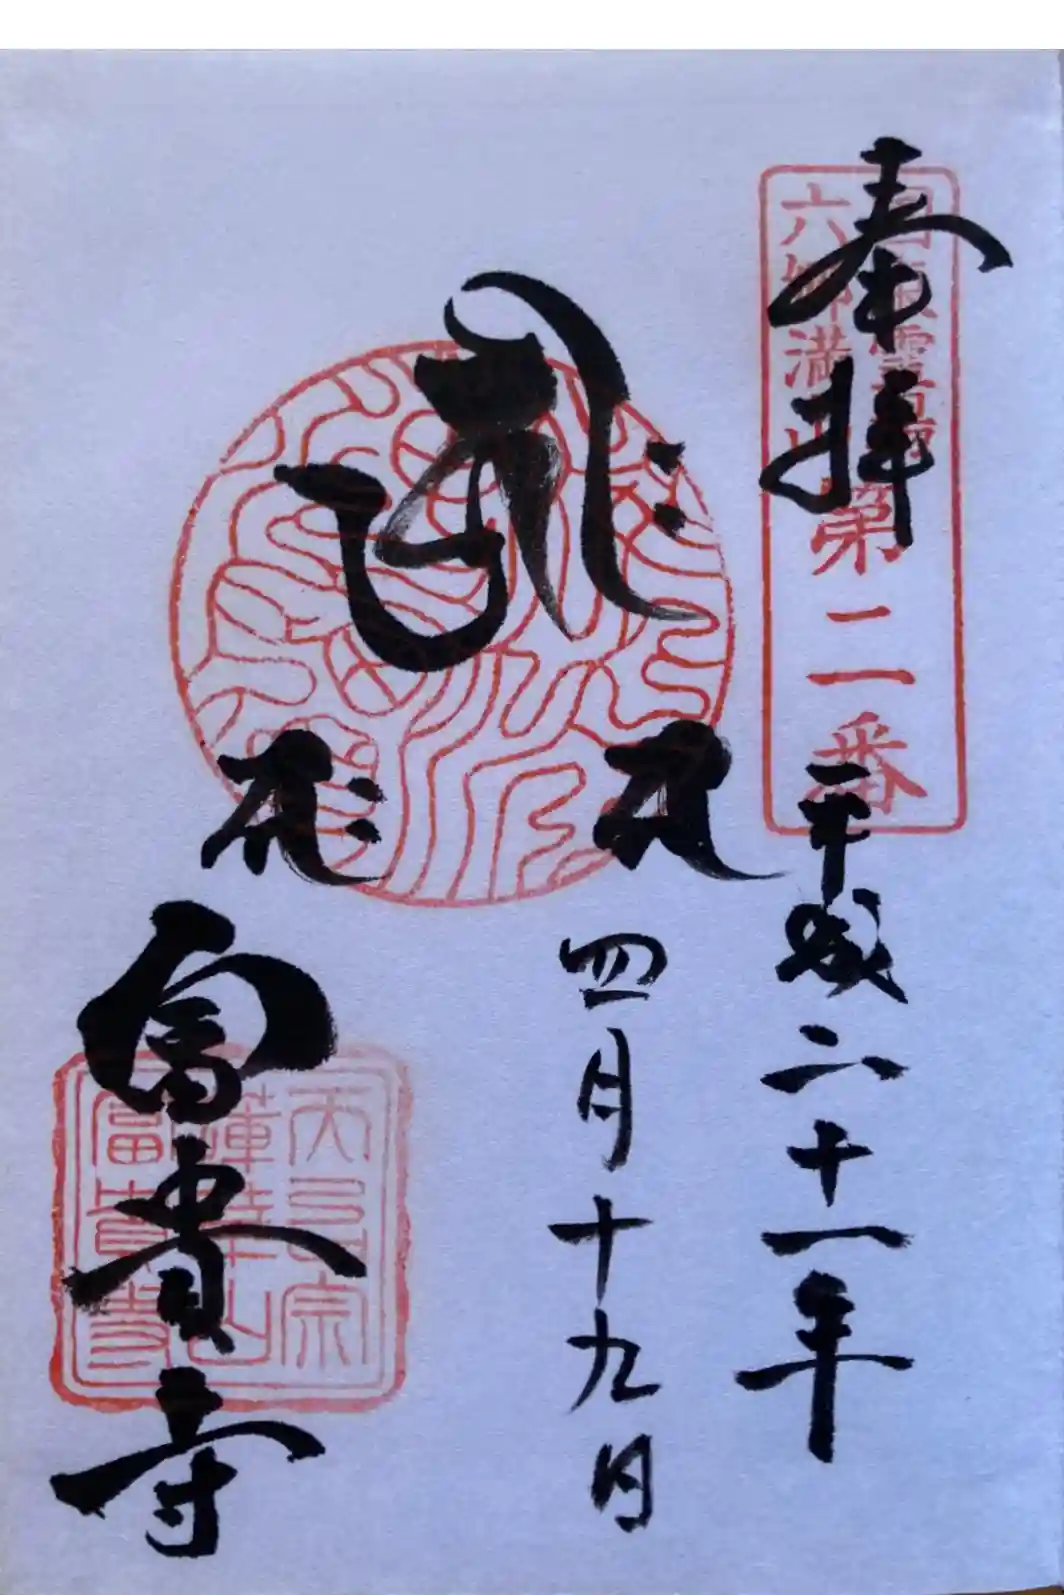 奉拝
六郷満山
國東霊場
第二番
平成二十一年
四月十九日
富貴寺
天台宗
蓮華山
富貴寺